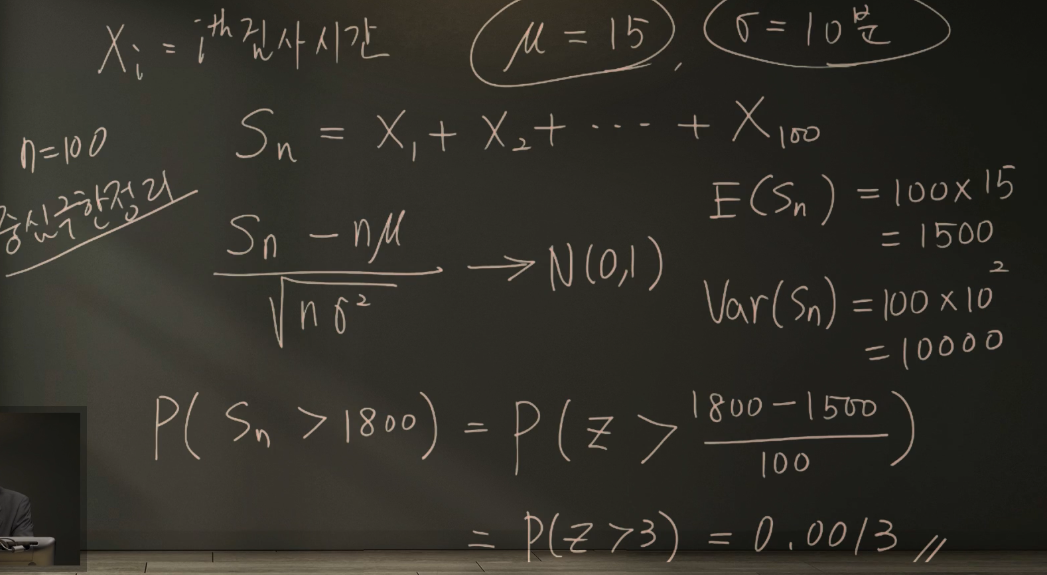 Xᵢ = iᵗʰ 검사시간
μ = 15, σ = 10분
n=100
중심극한정리
Sₙ = X₁ + X₂ + ⋯ + X₁₀₀
(Sₙ − nμ) / √(nσ²) → N(0,1)
E(Sₙ) = 100×15
= 1500
Var(Sₙ) = 100×10²
= 10000
P(Sₙ > 1800) = P(Z > (1800−1500)/100)
= P(Z>3) = 0.0013 //